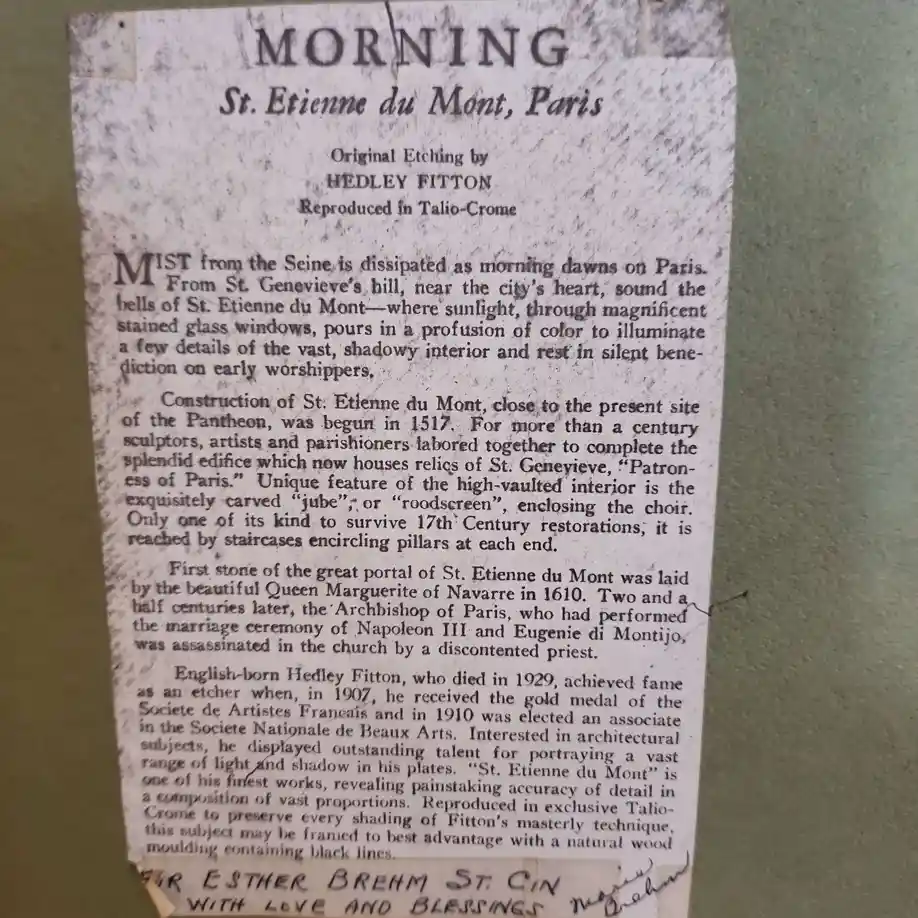 MORNING
St. Etienne du Mont, Paris
Original Etching by
HEDLEY FITTON
Reproduced in Talio-Crome
MIST from the Seine is dissipated as morning dawns on Paris.
From St. Genevieve's hill, near the city's heart, sound the
bells of St. Etienne du Mont—where sunlight, through magnificent
stained glass windows, pours in a profusion of color to illuminate
a few details of the vast, shadowy interior and rest in silent bene-
diction on early worshippers.
Construction of St. Etienne du Mont, close to the present site
of the Pantheon, was begun in 1517. For more than a century
sculptors, artists and parishioners labored together to complete the
splendid edifice which now houses relics of St. Genevieve, "Patron-
ess of Paris." Unique feature of the high-vaulted interior is the
exquisitely carved "jube", or "roodscreen", enclosing the choir.
Only one of its kind to survive 17th Century restorations, it is
reached by staircases encircling pillars at each end.
First stone of the great portal of St. Etienne du Mont was laid
by the beautiful Queen Marguerite of Navarre in 1610. Two and a
half centuries later, the Archbishop of Paris, who had performed
the marriage ceremony of Napoleon III and Eugenie di Montijo,
was assassinated in the church by a discontented priest.
English-born Hedley Fitton, who died in 1929, achieved fame
as an etcher when, in 1907, he received the gold medal of the
Societe de Artistes Francais and in 1910 was elected an associate
in the Societe Nationale de Beaux Arts. Interested in architectural
subjects, he displayed outstanding talent for portraying a vast
range of light and shadow in his plates. "St. Etienne du Mont" is
one of his finest works, revealing painstaking accuracy of detail in
a composition of vast proportions. Reproduced in exclusive Talio-
Crome to preserve every shading of Fitton's masterly technique,
this subject may be framed to best advantage with a natural wood
moulding containing black lines.
FOR ESTHER BREHM ST. CIN
WITH LOVE AND BLESSINGS
Marie
Brehm